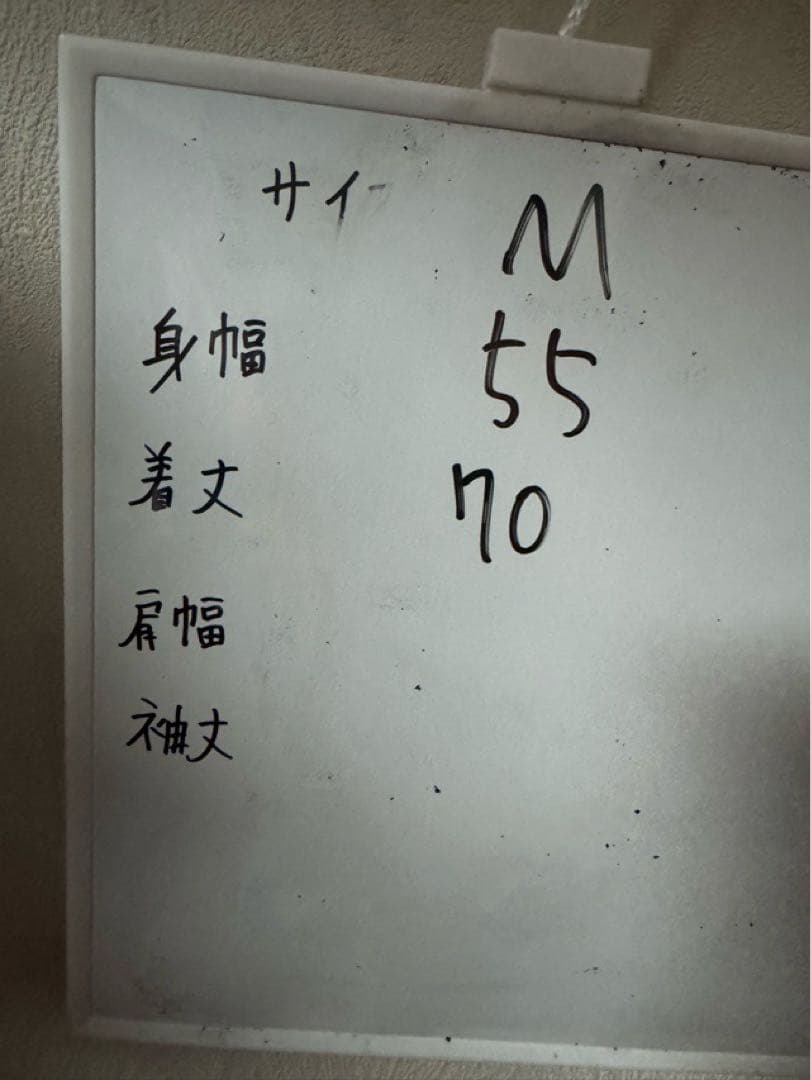 サイ M
身幅 55
着丈 70
肩幅
袖丈